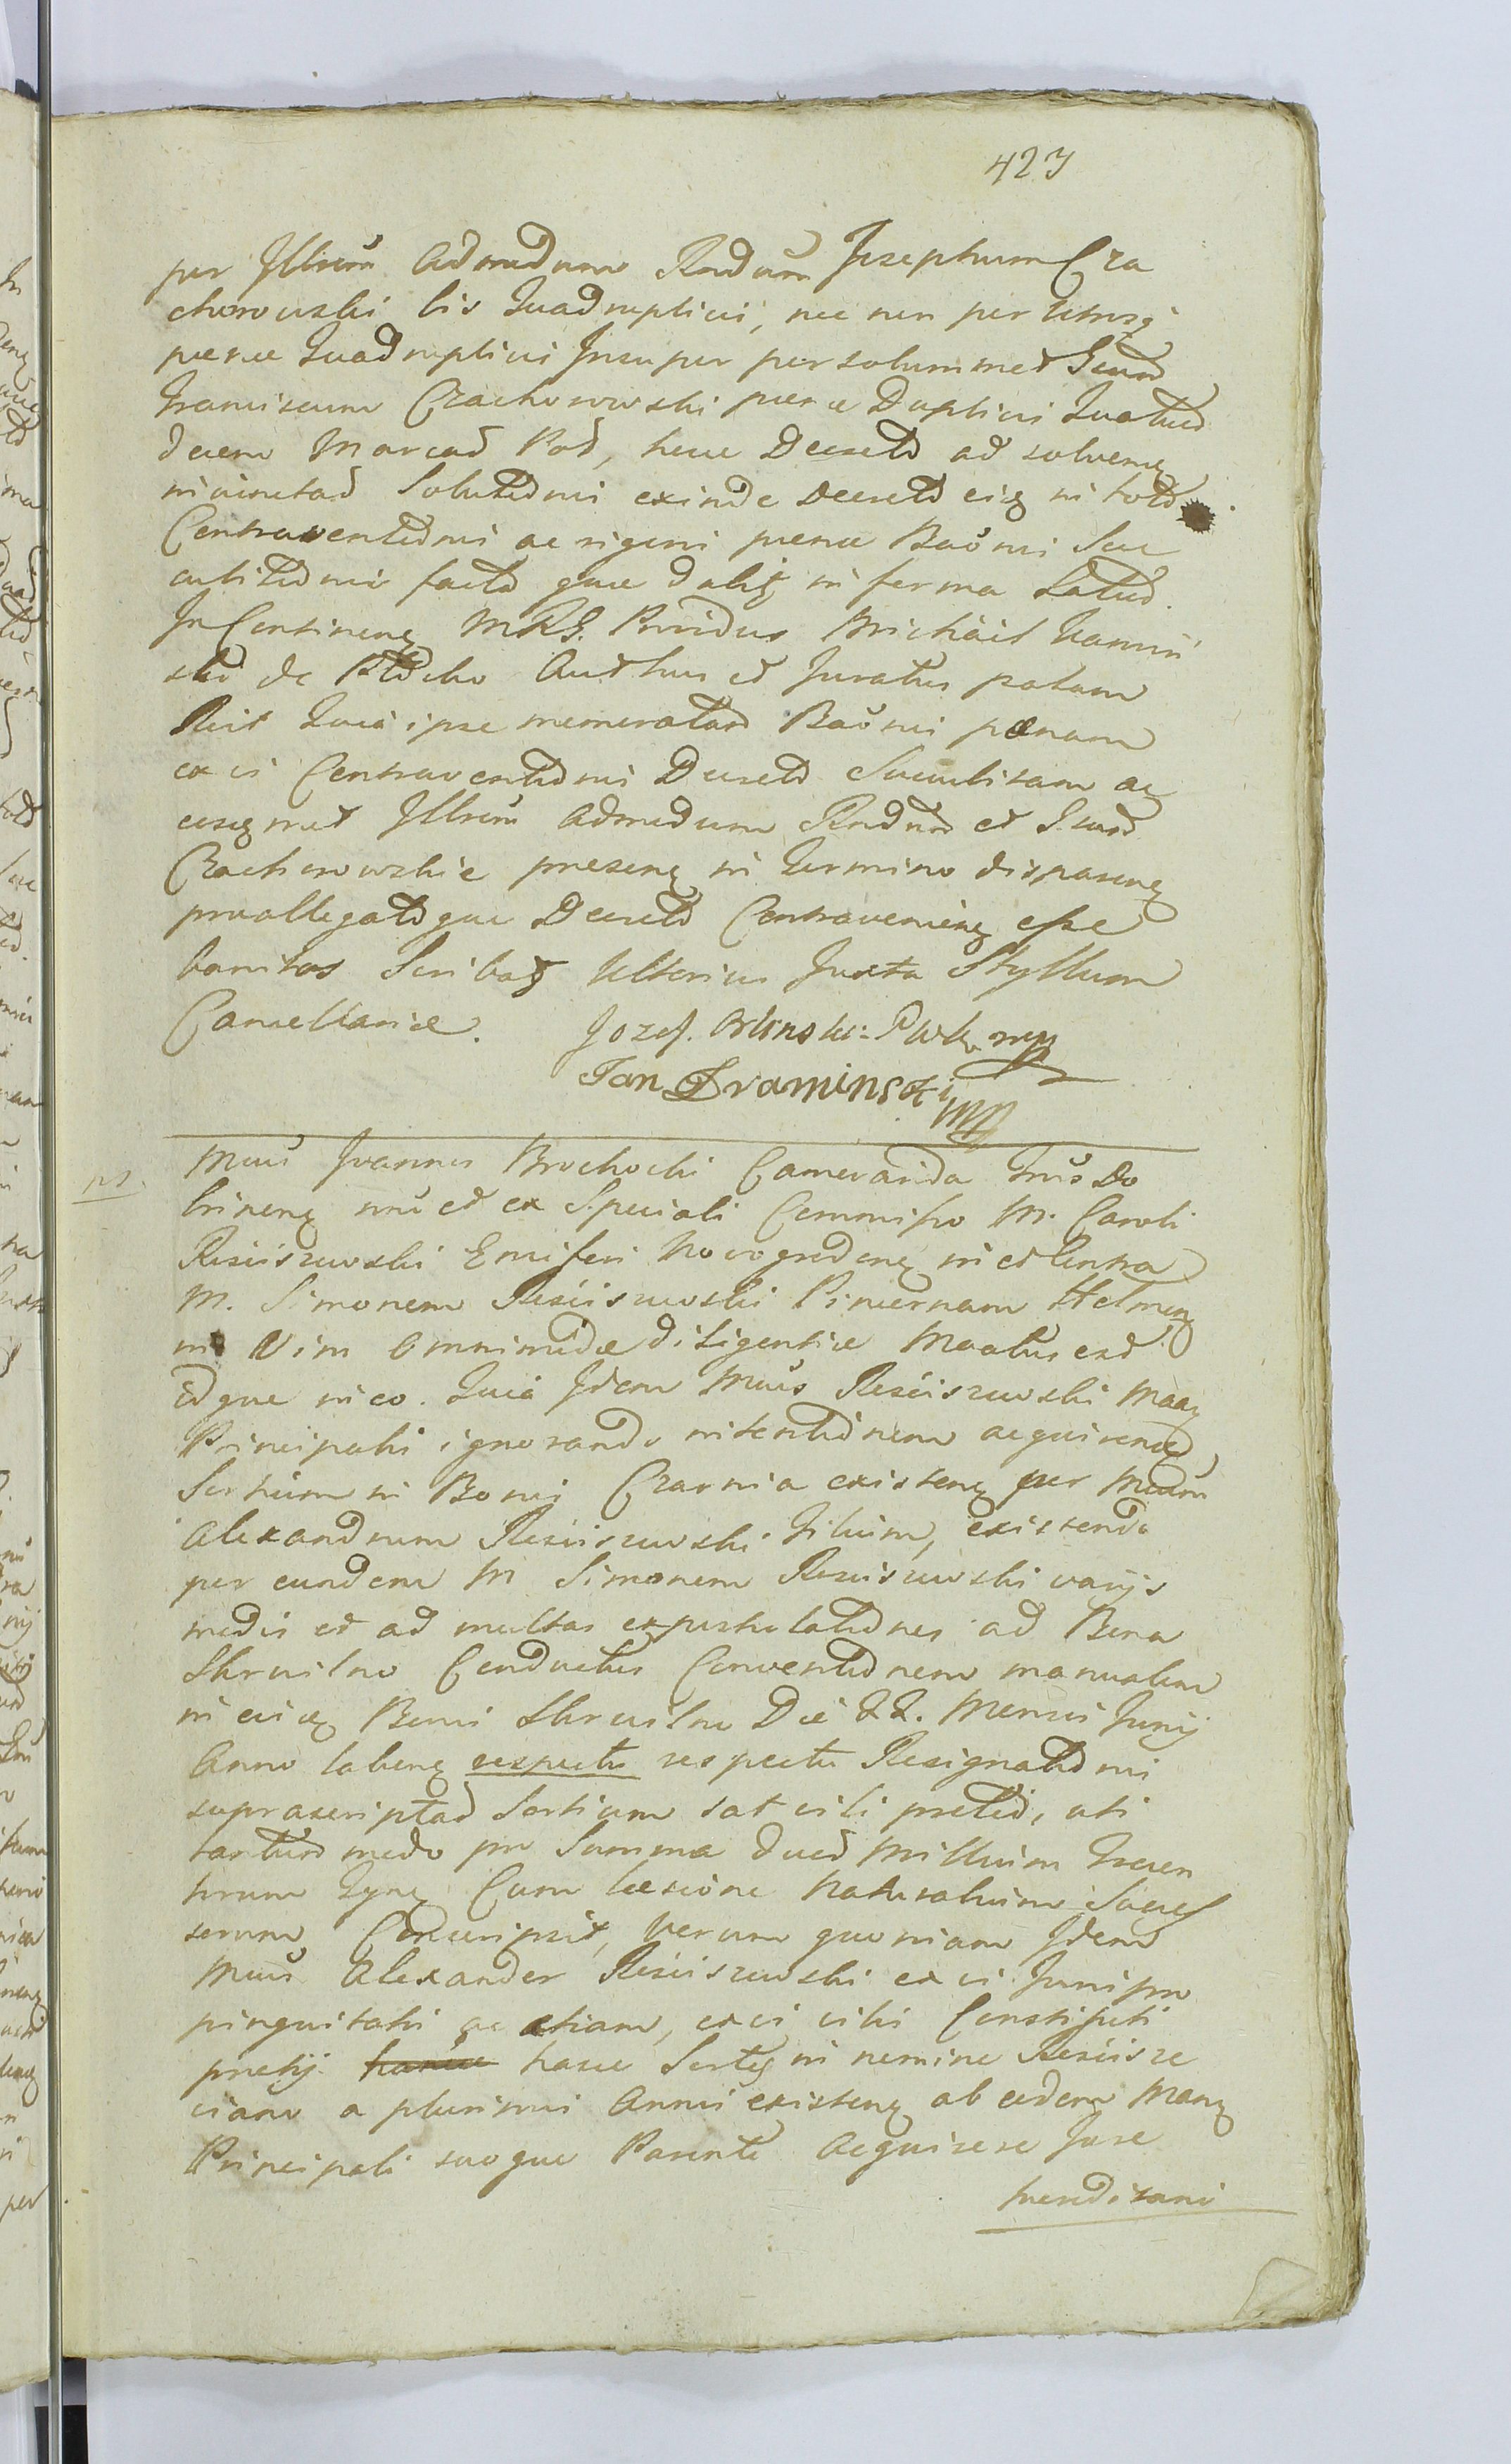 423
per Illrem Admodum Rndum Josephum Cza
chorowski bis Quadruplici, nec non per utrosq
penæ Quadruplici Insuper per solummet Gnum
Franciscum Czachorowski penæ Duplici Quatuor
decem Marcas Pol, hocce Decreto ad solvenq
nunctas Solutionis exinde Decreto eisq in toto
Contraventionis ac rigoris penæ Banis Suc
cubitionis facta que dabit in forma latus.
In Continenq MRG. Providus Michäel Kamin
ski de Actu et Juratus palam
Recit Quia ipse memoratam Banis pœnam
ex vi Contraventionis Decreto Succubitam ac
eosqmet Illrem Admodum Rndum et Gnum
Czachorowskie presenq in Termino disparenq
preallegatoque Decreto Contravenienq esse
banitos Scribat Ulterius Juxta Styllum
Cancellariæ. Jozef. Orlinski: mp
Jan Draminski mp
Mcus Joannes Brochocki Camerarida Trris Do
brinenq suo et ex Speciali Commisso M. Caroli
Rościszewski Ensiferi Novogrodenq in et Contra
M. Simonem Rościszewski Pincernam
in Vim Omnimodæ diligentiæ Mdatus est
idque in eo. Quia Idem Mcus Rościszewski Manq
Principali ignorando intentionem acquirend
Sortium in Bonis Czarnia existenq per Mcum
Alexandrum Rościszewski Filium, existendo
per eundem M Simonem Rościszewski varijs
modis et ad multas expostulationes ad Bona
Skrwilno Conductus Conventionem manualem
in eisq Bonis Skrwilno Die 22. Mensis Junij
Anno labenq respectu respectu Resignationis
suprascriptas Sortium sat vili pretio, uti
tantum modo pro Summa duos Millium Trecen
torum Tynq Cum læsione Naturalium Succes
sorum Conscripsit, Verum quoniam Idem
Mcus Alexander Rościszewski ex vi Juris pro
pinquitatis ac etiam, ex vi vilis Constituti
pretij hasce hasce Sortes in nomine Rościsze
viano a plurimis Annis existenq ab eodem Manq
Principali suoque Parente Acquirere Jure
hæreditario